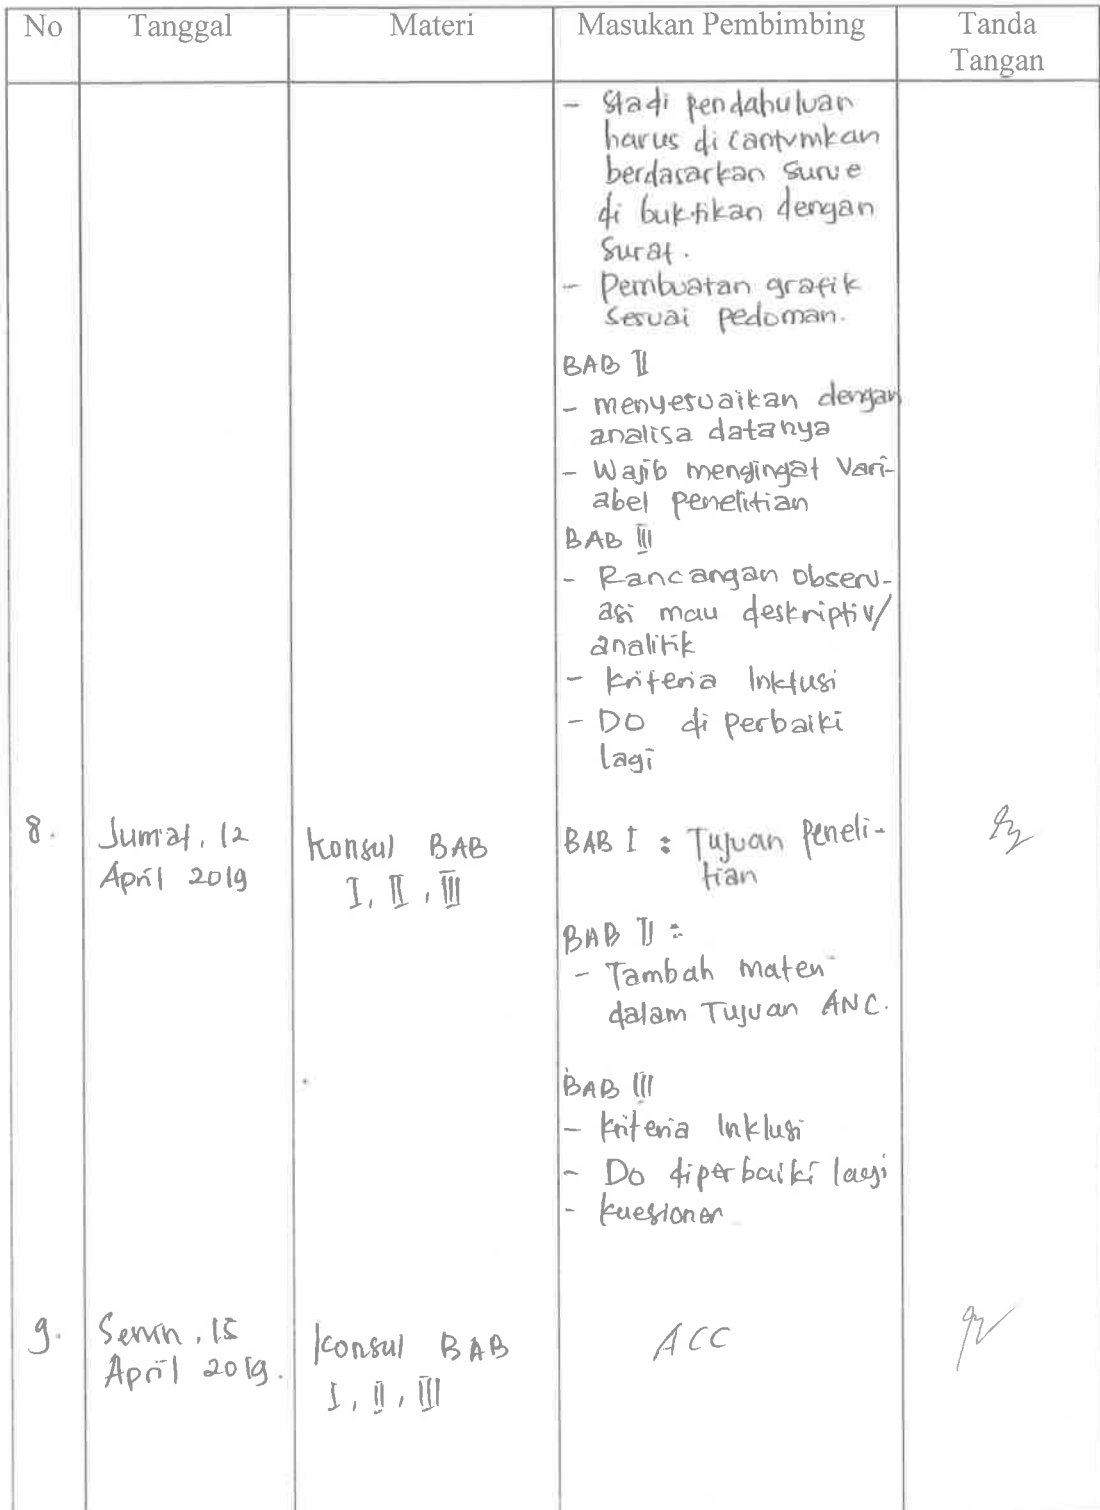 No Tanggal Materi Masukan Pembimbing Tanda
Tangan
- Stadi pendahuluan
harus di cantumkan
berdasarkan surve
di buktikan dengan
Surat.
- Pembuatan grafik
Sesuai pedoman.
BAB II
- menyesuaikan dengan
analisa datanya
- Wajib mengingat Vari-
abel penelitian
BAB III
- Rancangan observ-
asi mau deskriptiv/
analitik
- kriteria Inklusi
- DO di perbaiki
lagi
8. Jum'at, 12
April 2019
Konsul BAB
I, II, III
BAB I : Tujuan peneli-
tian
BAB II :
- Tambah materi
dalam Tujuan ANC.
BAB III
- kriteria Inklusi
- Do diperbaiki lagi
- kuesioner
9. Senin, 15
April 2019.
Konsul BAB
I, II, III
ACC